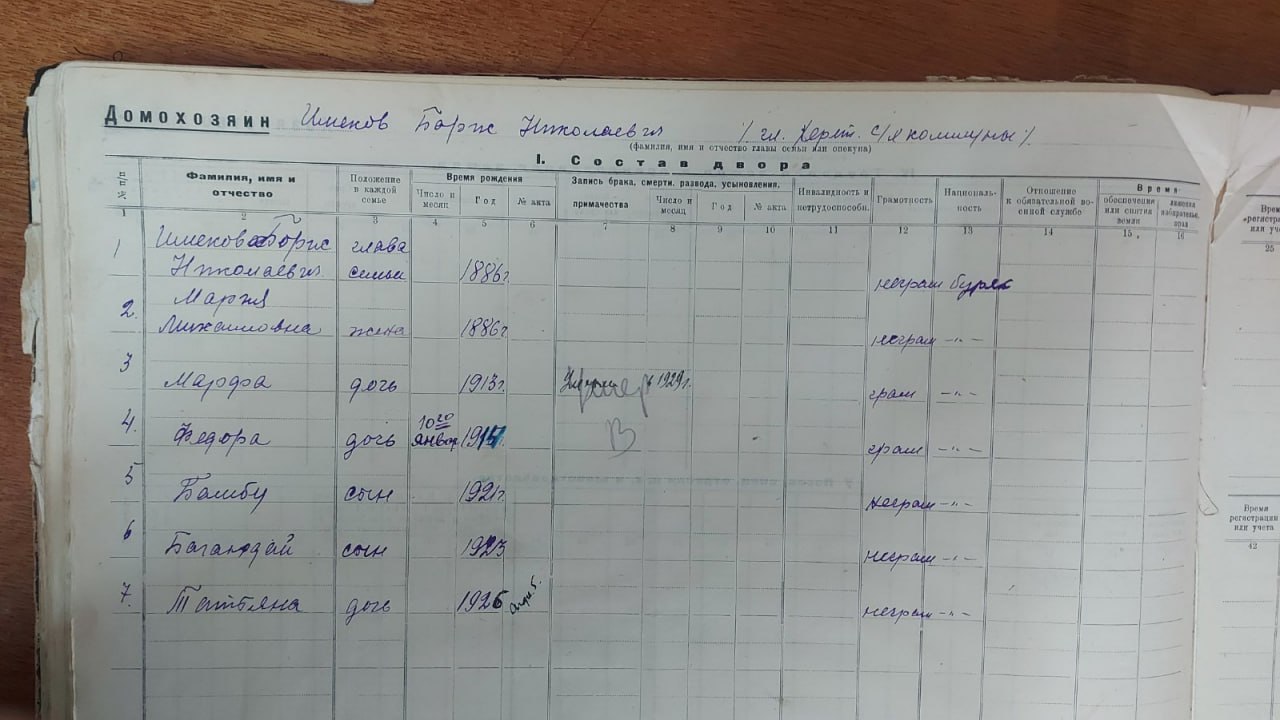 Домохозяин Имеков Борис Николаевич
(фамилия, имя и отчество главы семьи или опекуна)
I. Состав двора
№ п/п
Фамилия, имя и отчество
Положение в каждой семье
Время рождения
Число и месяц
Год
№ акта
Запись брака, смерти, развода, усыновления,
примачества
Число и месяц
Год
№ акта
Инвалидность и нетрудоспособн.
Грамотность
Националь-
ность
Отношение
к обязательной во-
енной службе
Время
обеспечения
или снятия
земли
лишения
избиратель.
прав
1 2 3 4 5 6 7 8 9 10 11 12 13 14 15 16
1 Имеков Борис глава
Николаевич семьи 1886г. неграм бурят
2. Мария
Михайловна жена 1886г. неграм -"-
3 Марфа дочь 1913г. 1929г. грам -"-
4. Федора дочь 10го январ грам -"-
5 Бамбу сын 1921г неграм -"-
6 сын 1923 неграм -"-
7. Татьяна дочь 1926 неграм -"-
Время
регистрации
или учета
25
Время
регистрации
или учета
42